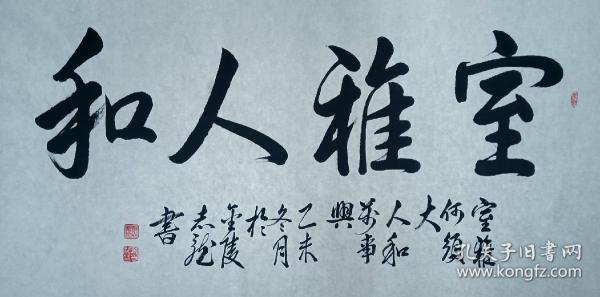 室雅人和
室雅
何须
大
人和
萬事
興
乙未
冬月
於
金陵
志龍
書
孔夫子旧书网
www.kongfz.com